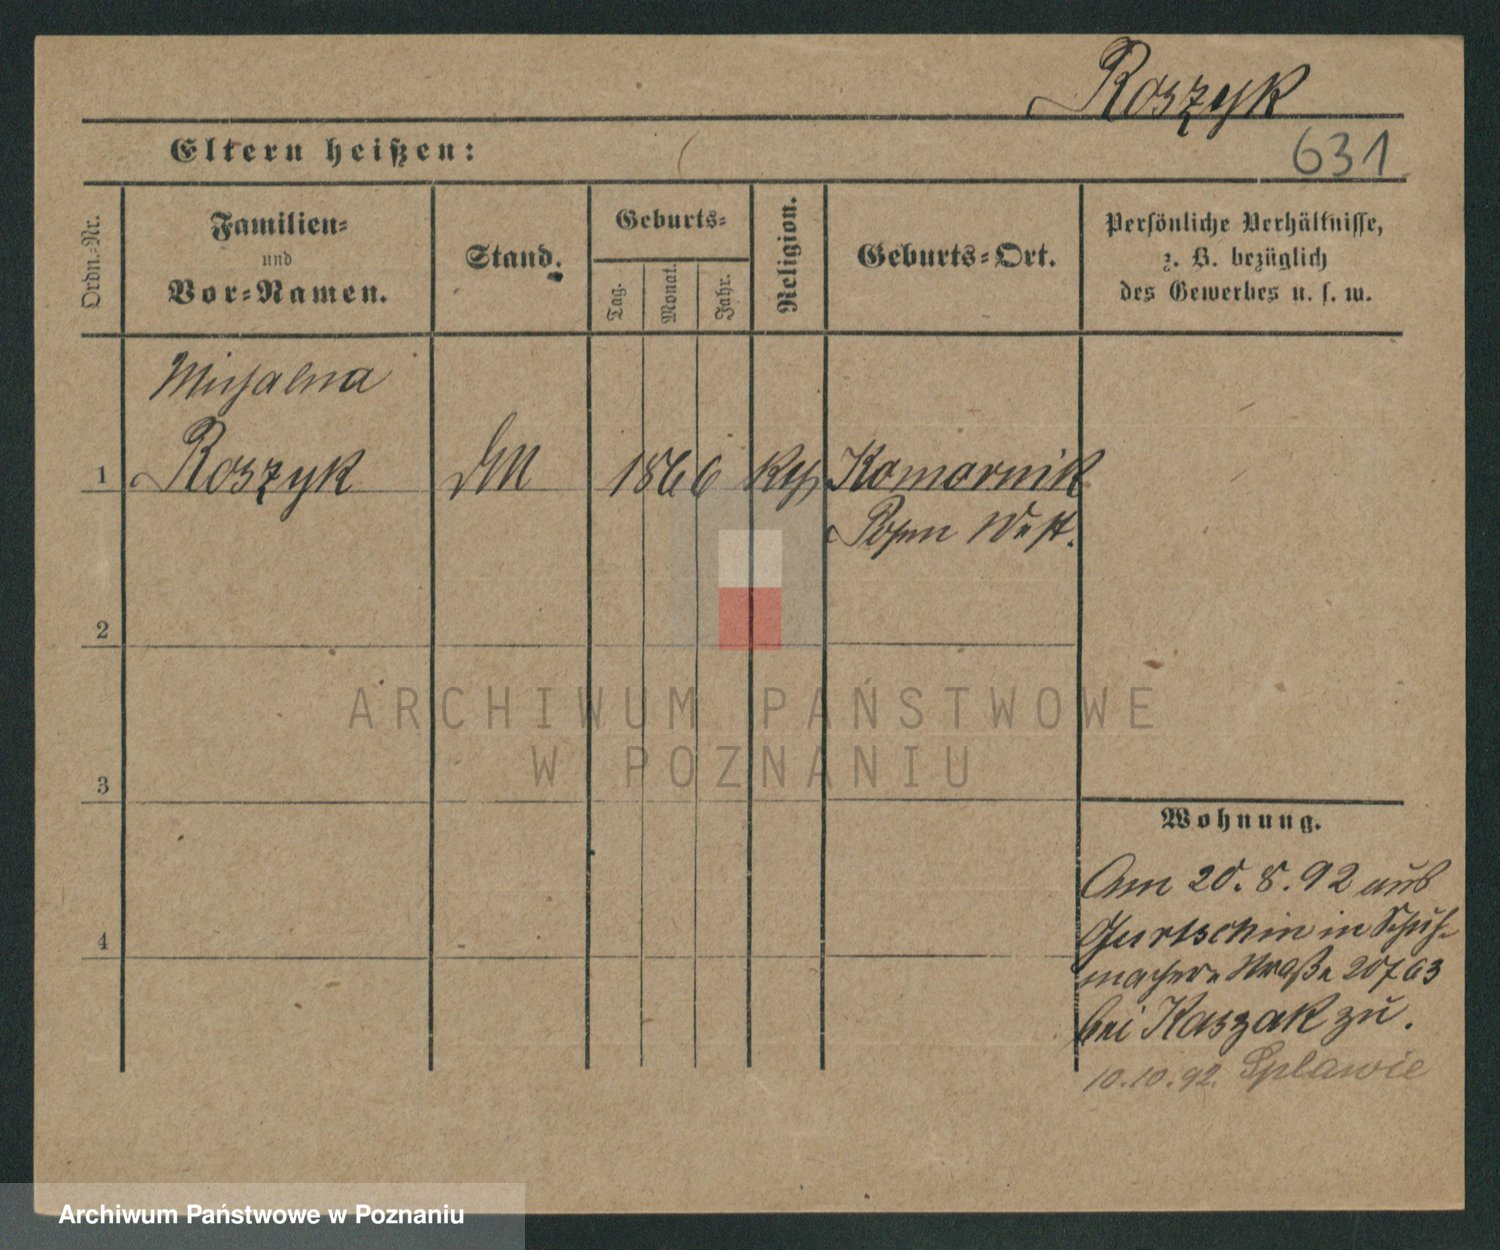 Roszyk
631
Eltern heißen:
Ordn.-Nr.
Familien-
und
Vor-Namen.
Stand.
Geburts-
Tag.
Monat.
Jahr.
Religion.
Geburts-Ort.
Persönliche Verhältnisse,
z. B. bezüglich
des Gewerbes u. s. w.
Michalina
1 Roszyk DM 1866 kth Komornik
Posen West.
2
3
4
Wohnung.
Am 20.8.92 aus
Gurtschin in Schuh-
macher Straße 20
bei Kaszak zu.
10.10.92. Splawie
ARCHIWUM PAŃSTWOWE
W POZNANIU
Archiwum Państwowe w Poznaniu